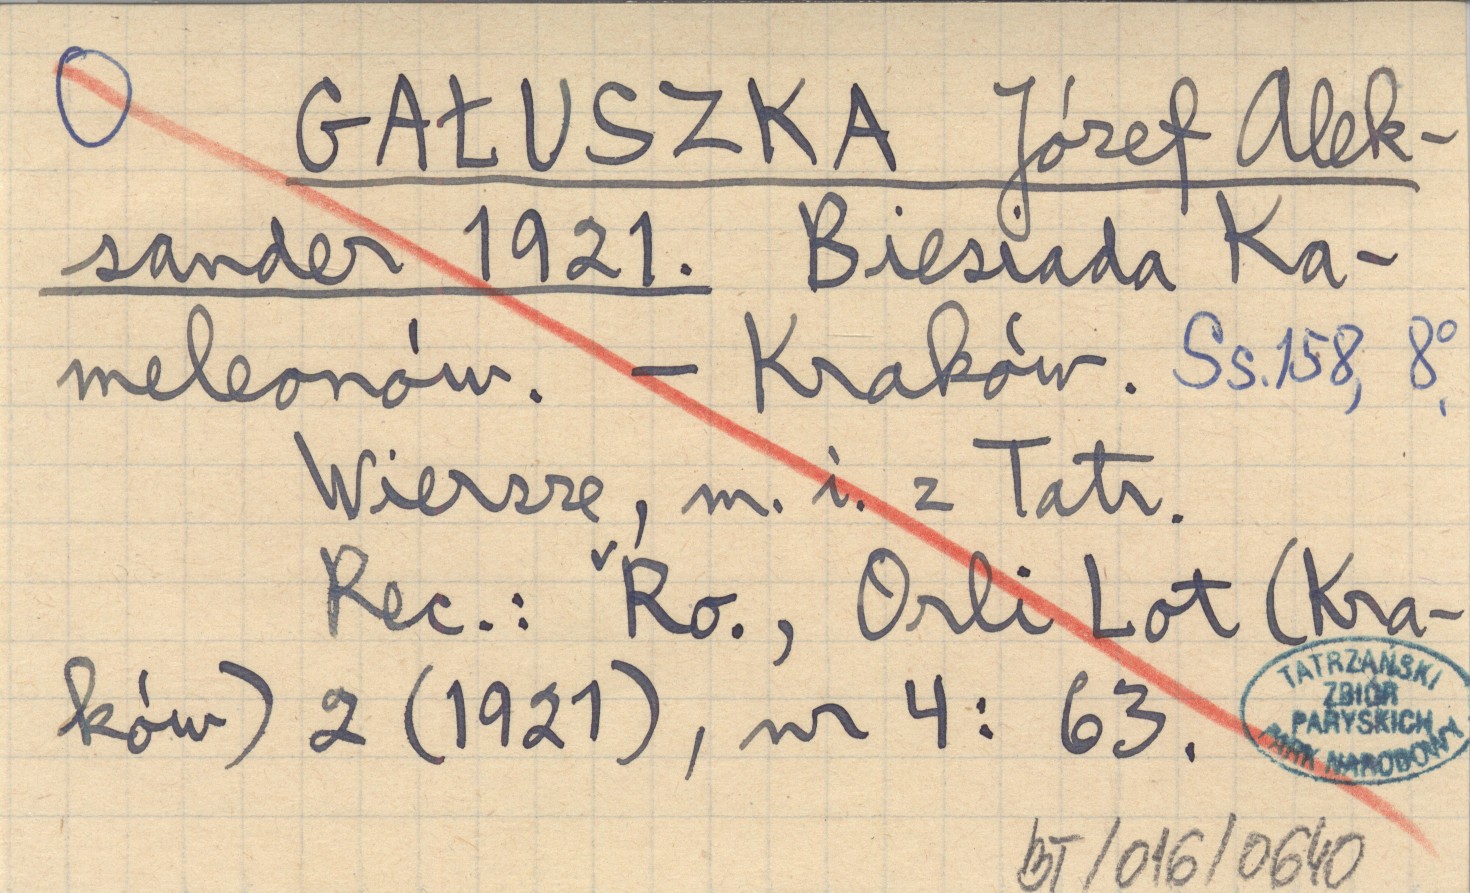 GAŁUSZKA Józef Alek-
sander 1921. Biesiada Ka-
meleonów. – Kraków. Ss. 158, 8°.
Wiersze, m. i. z Tatr.
Rec.: Ro., Orli Lot (Kra-
ków) 2 (1921), nr 4: 63.
TATRZAŃSKI
ZBIÓR
PARYSKICH
PARK NARODOWY
BT/016/0640